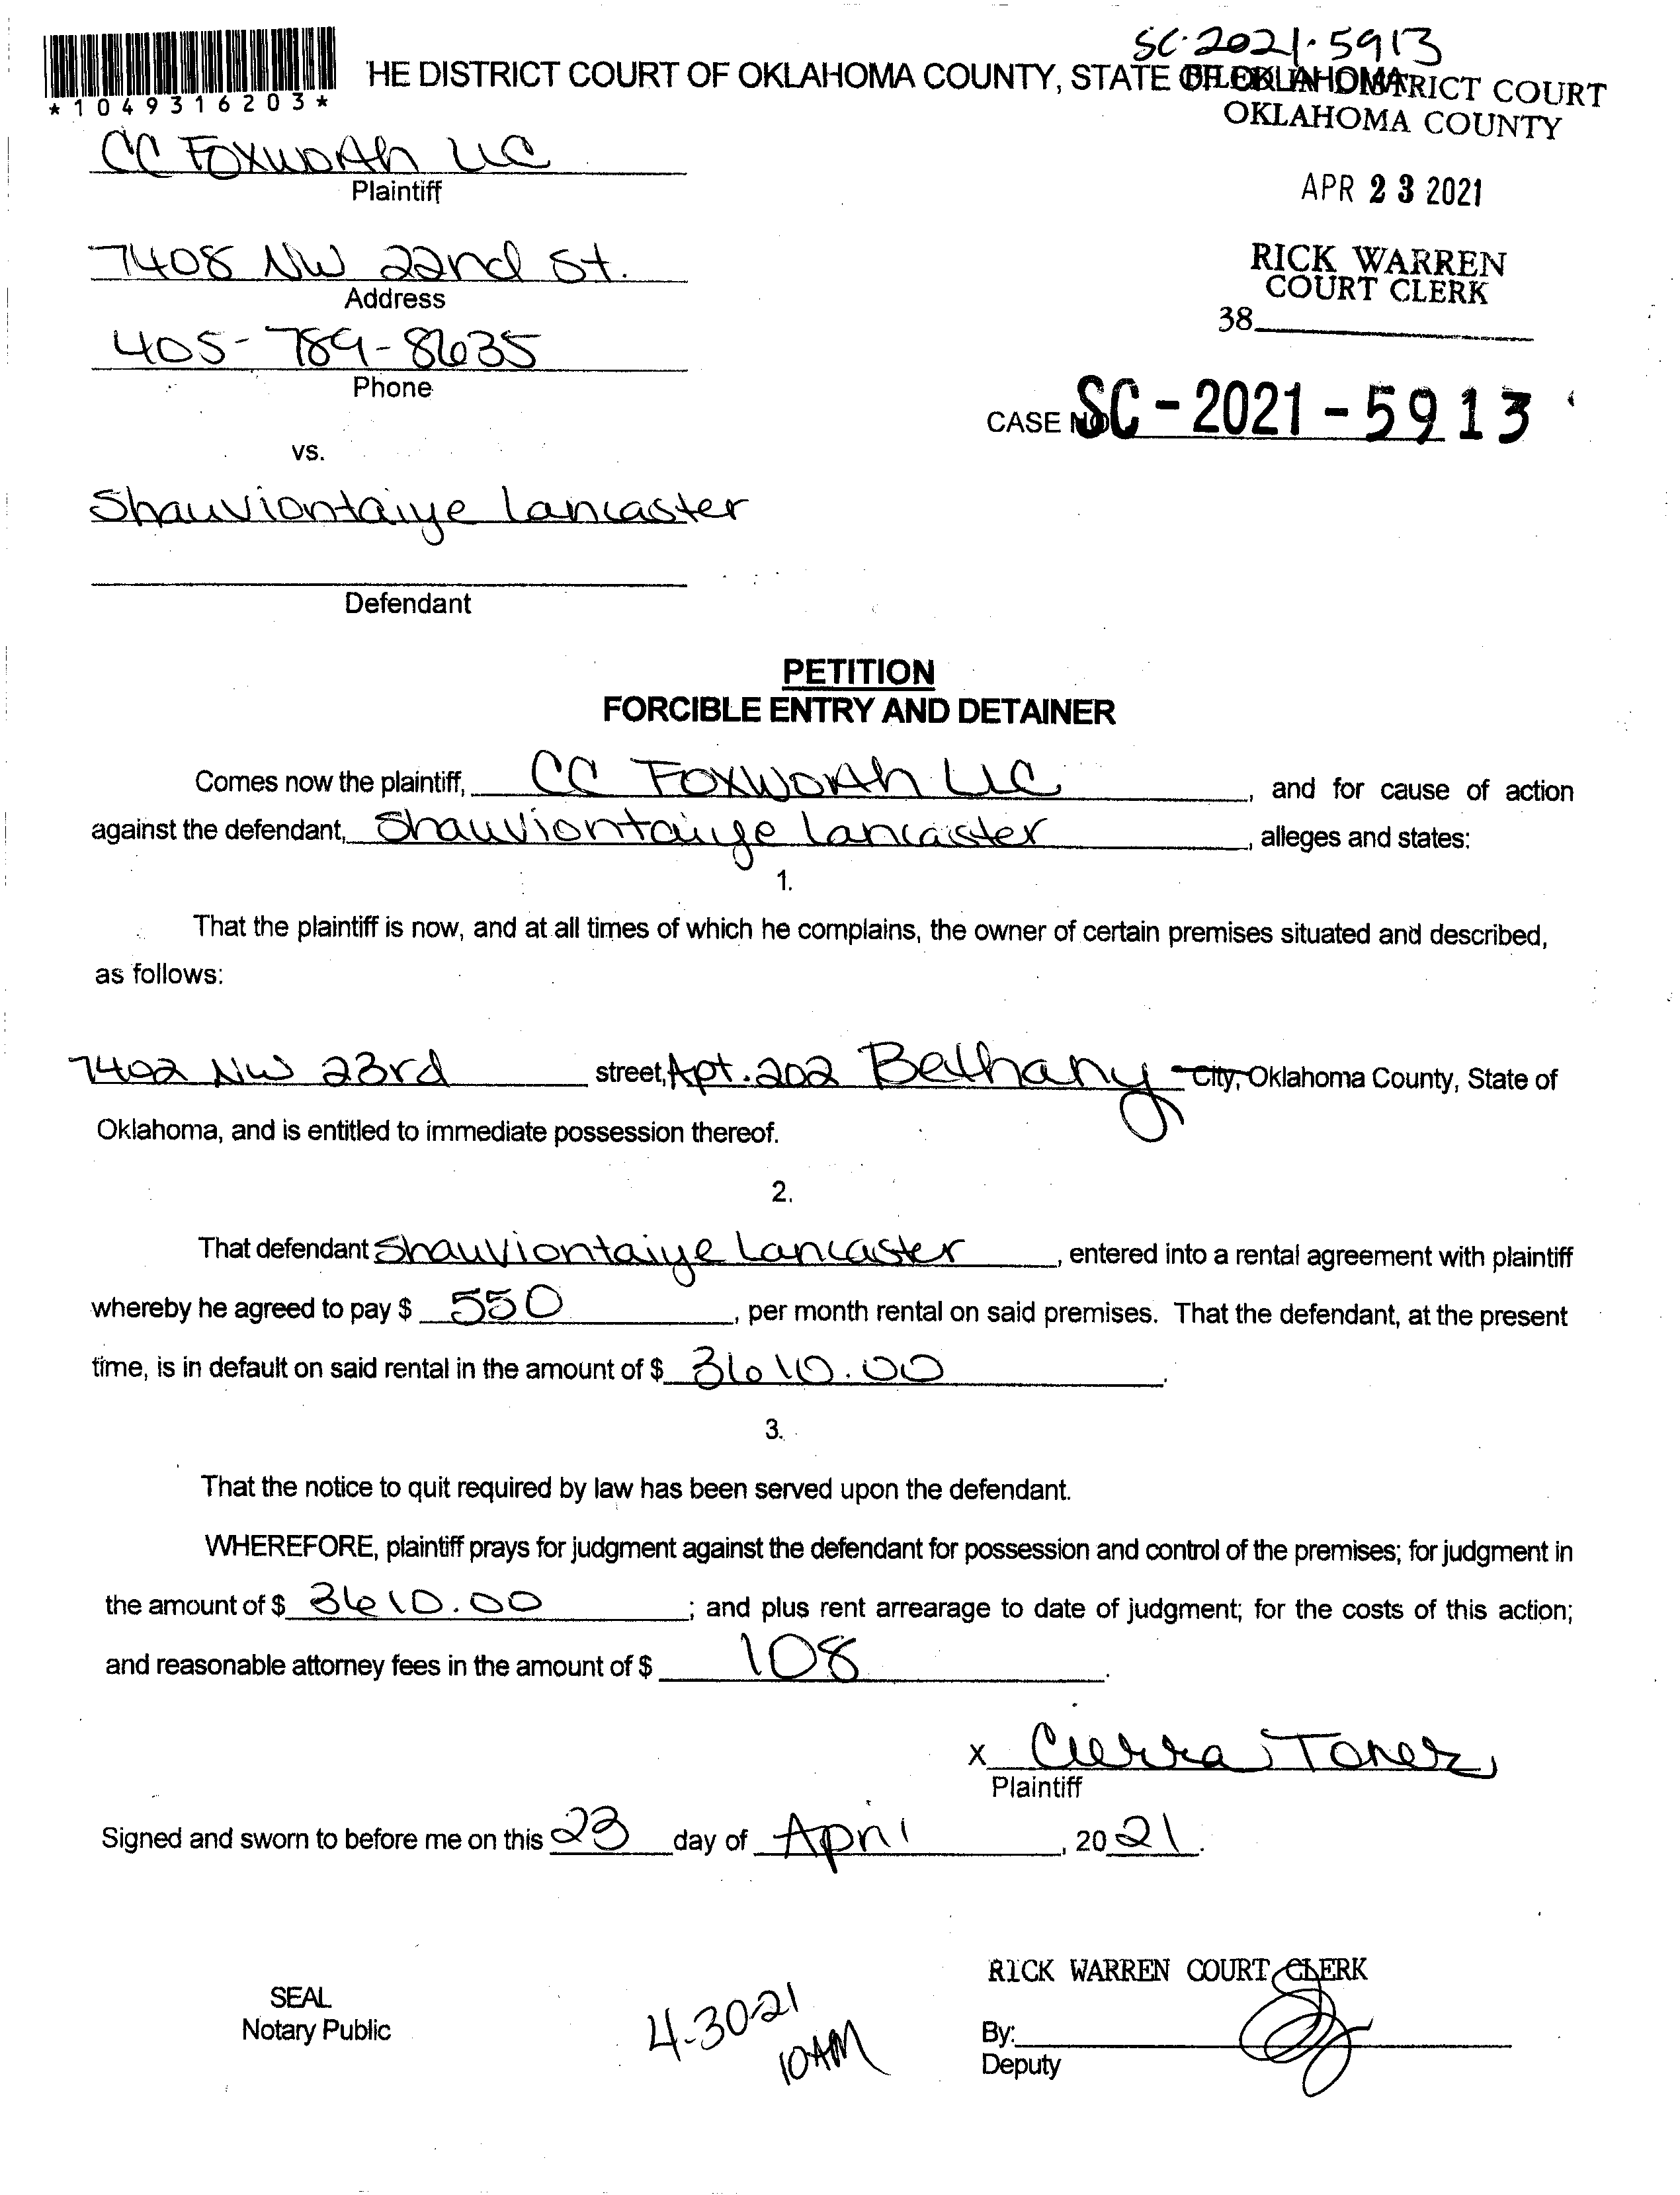 SC-2021-5913
*1049316203*
HE DISTRICT COURT OF OKLAHOMA COUNTY, STATE OF OKLAHOMA
FILED IN DISTRICT COURT
OKLAHOMA COUNTY
CC Foxworth LLC
Plaintiff
APR 23 2021
7408 NW 22nd St.
Address
RICK WARREN
COURT CLERK
38
405-789-8635
Phone
CASE NO. SC-2021-5913
vs.
Shauviontaiye Lancaster
Defendant
PETITION
FORCIBLE ENTRY AND DETAINER
Comes now the plaintiff, CC Foxworth LLC, and for cause of action
against the defendant, Shauviontaiye Lancaster, alleges and states:
1.
That the plaintiff is now, and at all times of which he complains, the owner of certain premises situated and described,
as follows:
7402 NW 23rd street, Apt. 202 Bethany City, Oklahoma County, State of
Oklahoma, and is entitled to immediate possession thereof.
2.
That defendant Shauviontaiye Lancaster, entered into a rental agreement with plaintiff
whereby he agreed to pay $ 550, per month rental on said premises. That the defendant, at the present
time, is in default on said rental in the amount of $ 3610.00.
3.
That the notice to quit required by law has been served upon the defendant.
WHEREFORE, plaintiff prays for judgment against the defendant for possession and control of the premises; for judgment in
the amount of $ 3610.00; and plus rent arrearage to date of judgment; for the costs of this action;
and reasonable attorney fees in the amount of $ 108.
x Cierra Toner
Plaintiff
Signed and sworn to before me on this 23 day of April, 2021.
RICK WARREN COURT CLERK
SEAL
Notary Public
4-30-21
10AM
By:
Deputy